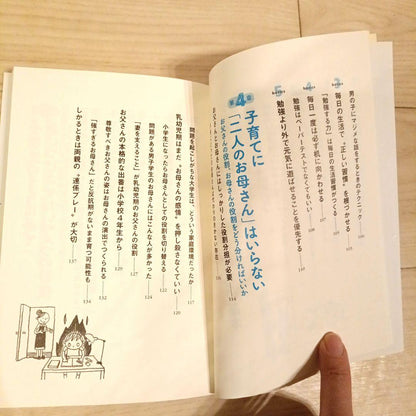 男の子にマジメな話をするときのテクニック
毎日の生活で“正しい習慣”を根づかせる
「勉強する力」は毎日の生活習慣がつくる
毎日一度は必ず机に向かわせる
勉強はペーパーテストでなくてもいい
勉強より外で元気に遊ばせることを優先する
第4章
子育てに
「二人のお母さん」はいらない
お父さんの役割、お母さんの役割をどう分ければいいか
お父さんとお母さんにはしっかりした役割分担が必要
114
問題を起こしがちな大学生は、どういう家庭環境だったか
乳幼児期はまだ“お母さんの感情”を押し殺さなくていい
小学生になったらお母さんとしての役割を切り替える
問題がある男子学生のお母さんにはこんな人が多かった
「妻を支えること」が乳幼児期のお父さんの役割
お父さんの本格的な出番は小学校4年生から
尊敬すべきお父さんの姿はお母さんの演出でつくられる
「強すぎるお母さん」だと反抗期がないまま育つ可能性も
しかるときは両親の“連係プレー”が大切
137
134